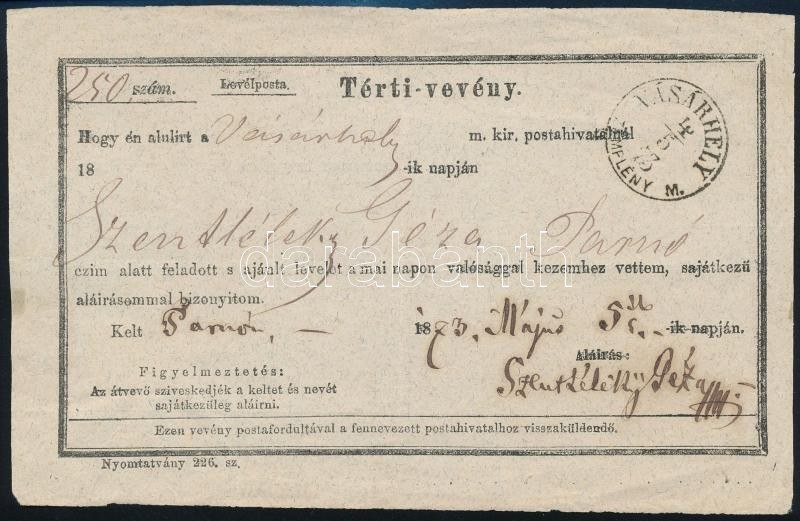 250. szám.
Levélposta.
Térti-vevény.
VÁSÁRHELY
ZEMPLÉNY M.
4/5 73
Hogy én alulirt a Vásárhely m. kir. postahivatalnál
18 -ik napján
Szentléleky Géza Parnó
darabanth
czim alatt feladott s ajánlt levelet a mai napon valósággal kezemhez vettem, sajátkezü
aláirásommal bizonyitom.
Kelt Parnón, 1873. Május 5ik -ik napján.
Aláirás:
Szentléleky Géza
Figyelmeztetés:
Az átvevő sziveskedjék a keltet és nevét
sajátkezüleg aláirni.
Ezen vevény postafordultával a fennevezett postahivatalhoz visszaküldendő.
Nyomtatvány 226. sz.